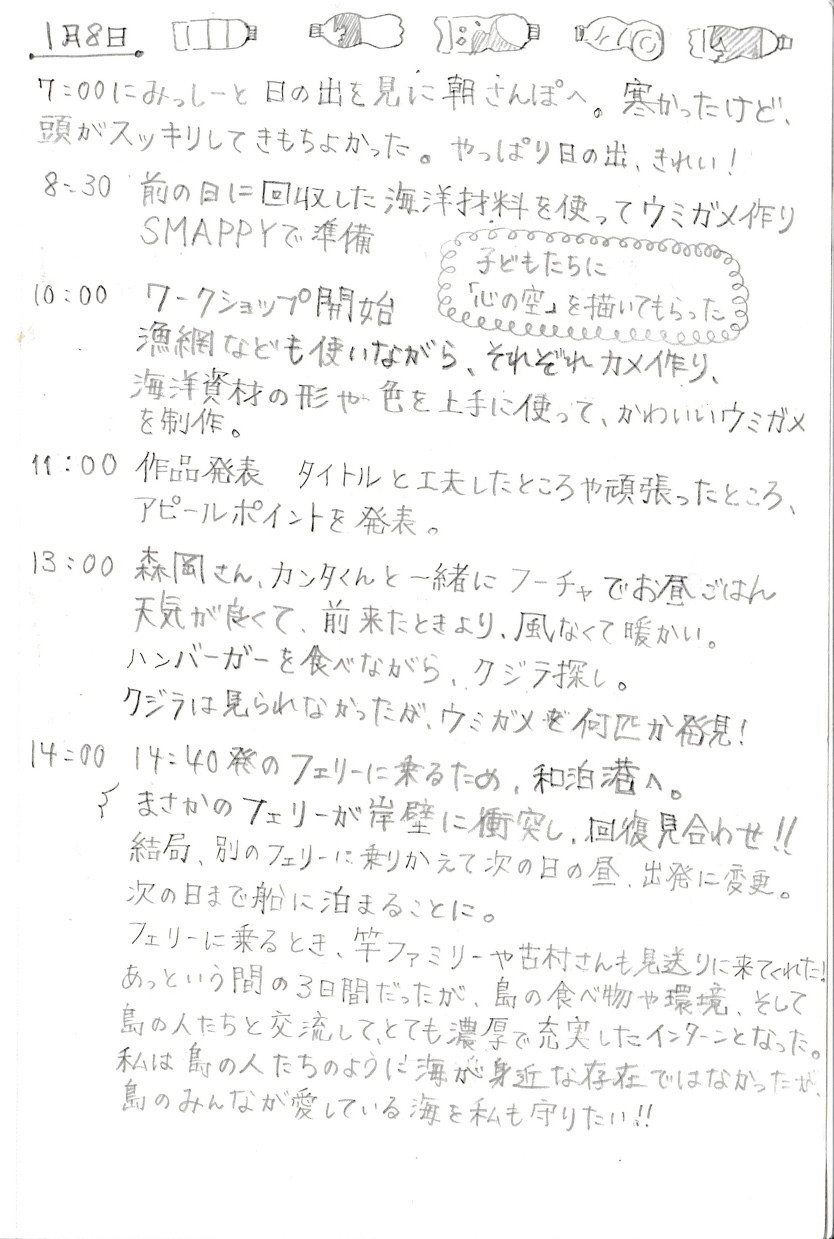 1月8日
7:00にみっしーと日の出を見に朝さんぽへ。寒かったけど、
頭がスッキリしてきもちよかった。やっぱり日の出、きれい!
8:30 前の日に回収した海洋材料を使ってウミガメ作り
SMAPPYで準備
子どもたちに
「心の空」を描いてもらった
10:00 ワークショップ開始
漁網なども使いながら、それぞれカメ作り、
海洋資材の形や色を上手に使って、かわいいウミガメ
を制作。
11:00 作品発表 タイトルと工夫したところや頑張ったところ、
アピールポイントを発表。
13:00 森岡さん、カンタくんと一緒にフーチャでお昼ごはん
天気が良くて、前来たときより、風なくて暖かい。
ハンバーガーを食べながら、クジラ探し。
クジラは見られなかったが、ウミガメを何匹か発見!
14:00 14:40発のフェリーに乗るため、和泊港へ。
〜 まさかのフェリーが岸壁に衝突し、回復見合わせ!!
結局、別のフェリーに乗りかえて次の日の昼、出発に変更。
次の日まで船に泊まることに。
フェリーに乗るとき、竿ファミリーや古村さんも見送りに来てくれた!
あっという間の3日間だったが、島の食べ物や環境、そして
島の人たちと交流して、とても濃厚で充実したインターンとなった。
私は島の人たちのように海が身近な存在ではなかったが、
島のみんなが愛している海を私も守りたい!!